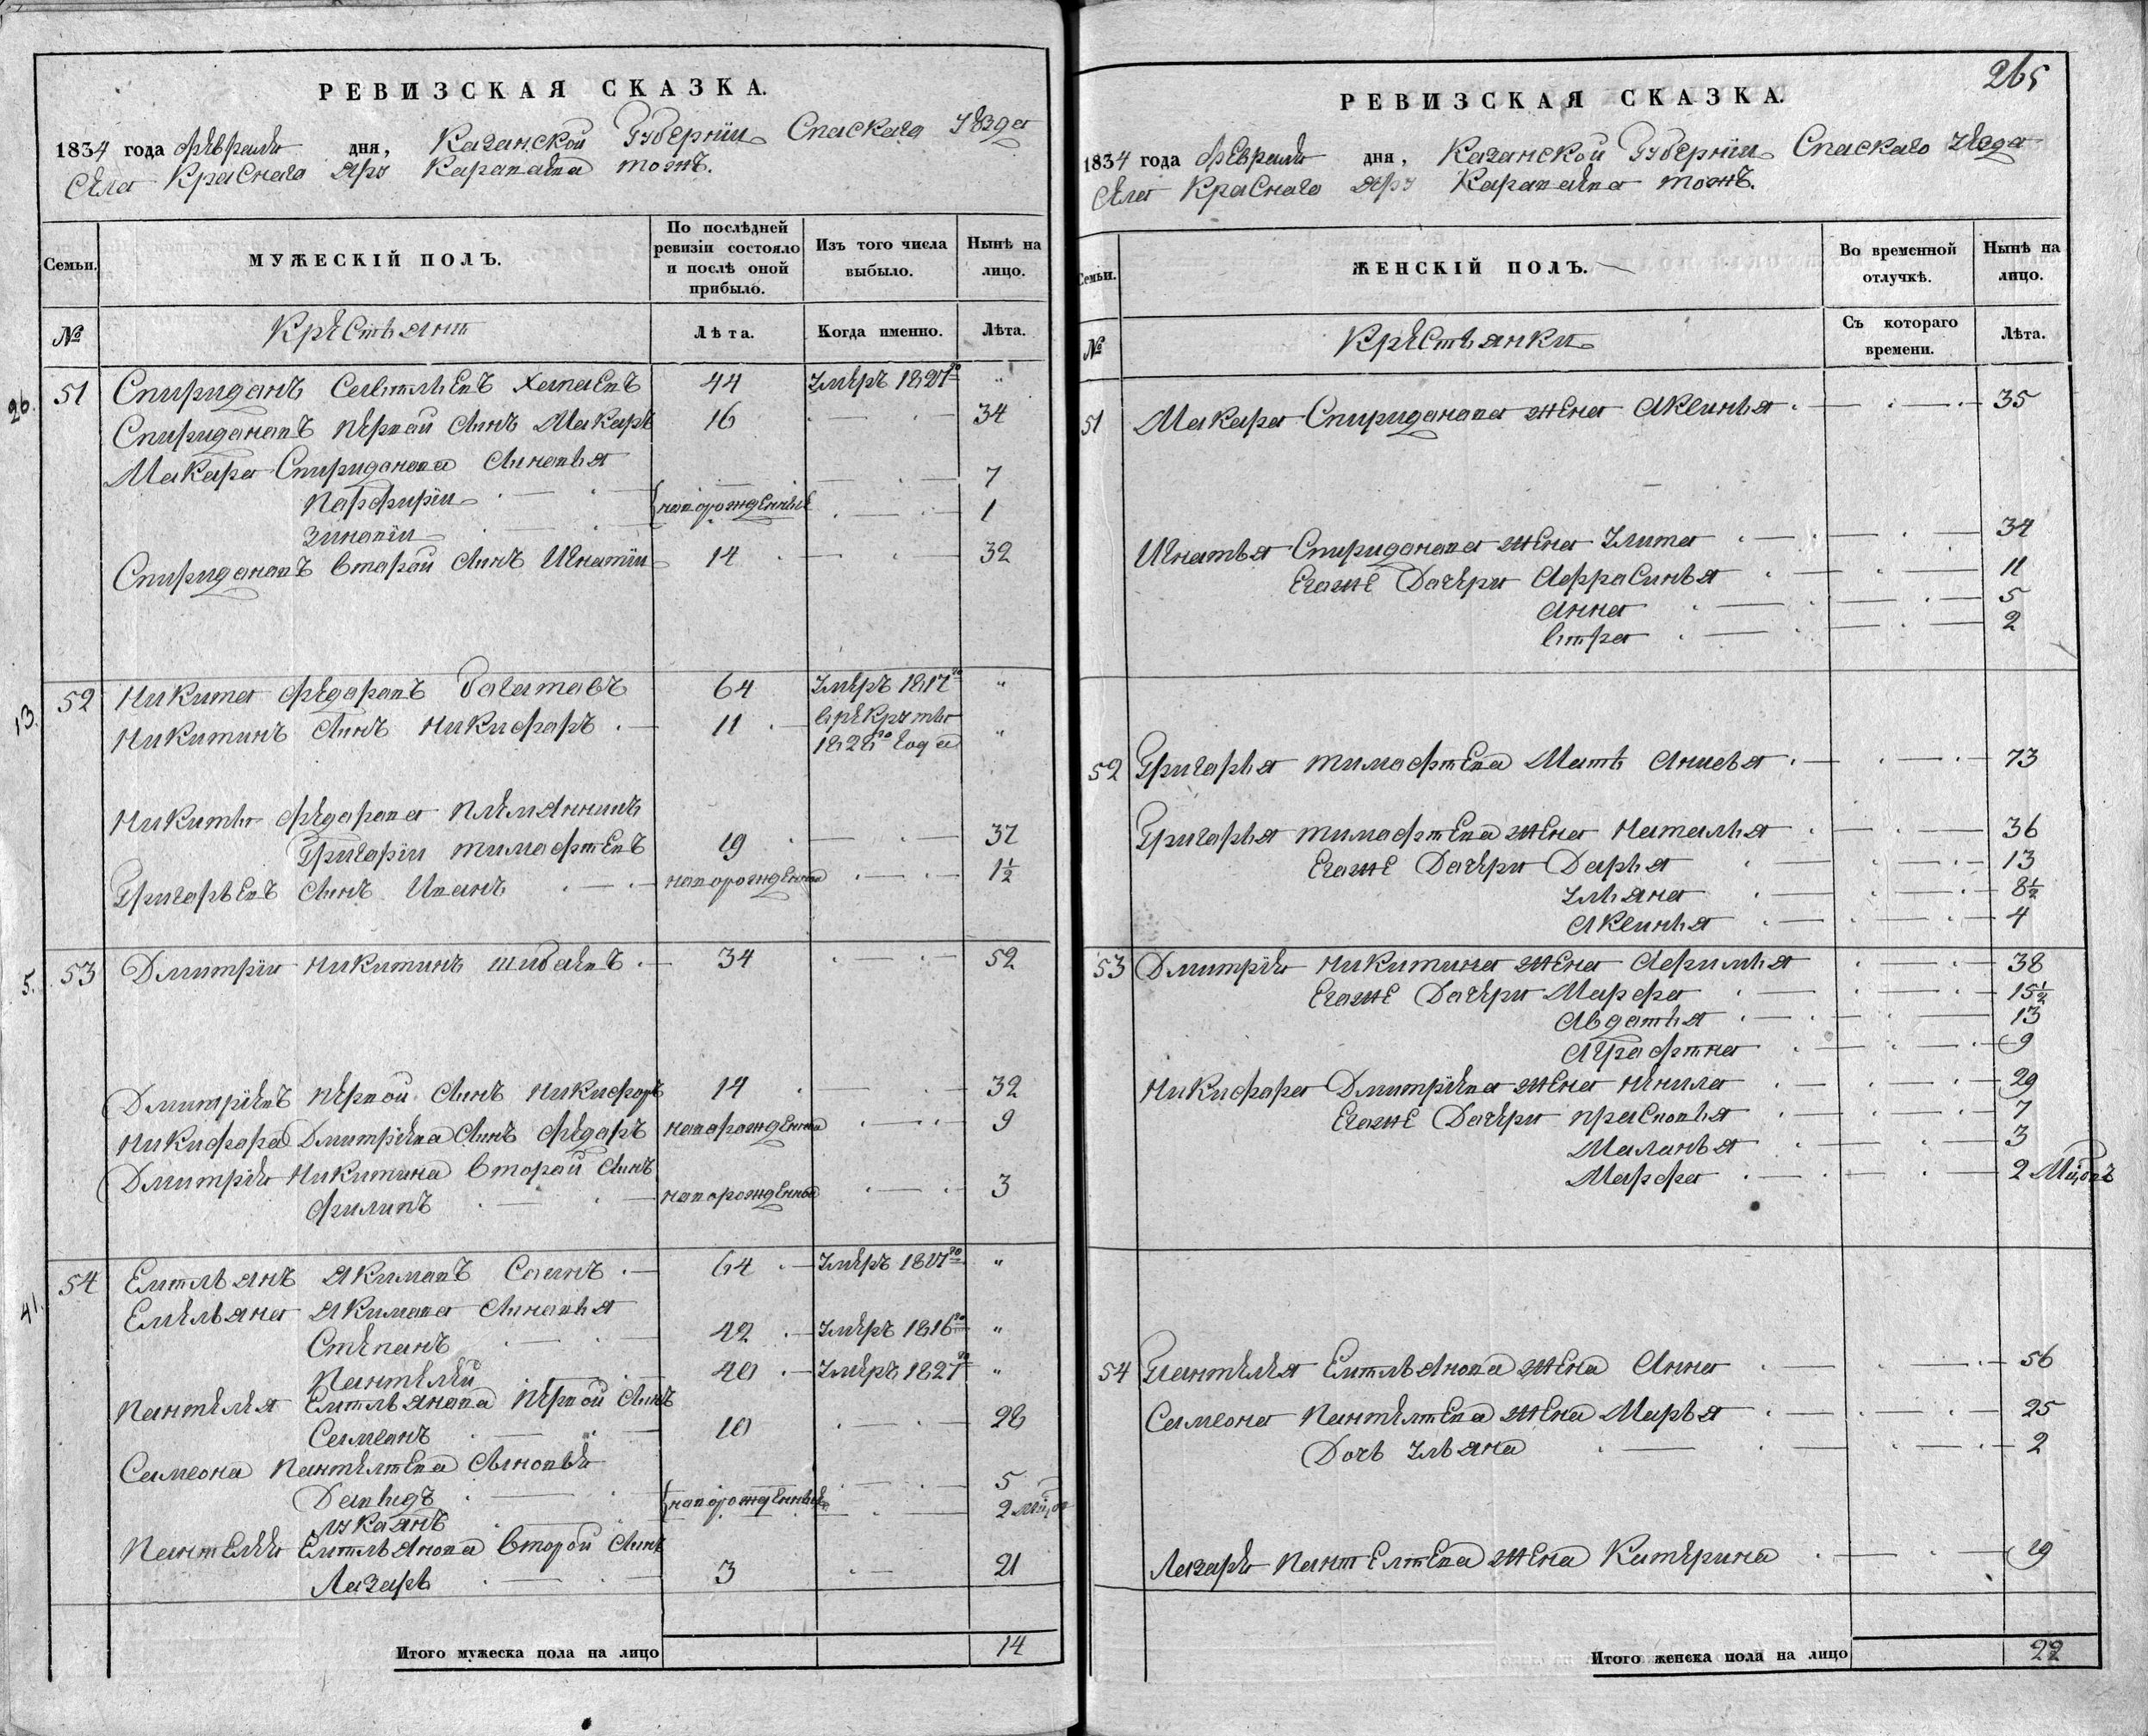 РЕВИЗСКАЯ СКАЗКА.
1834 года февраля дня, Казанской Губернiи Спаскаго Уезда
Села Краснаго Яру Караваева тожъ.
Семьи.
МУЖЕСКІЙ ПОЛЪ.
По послѣдней ревизіи состояло и послѣ оной прибыло.
Изъ того числа выбыло.
Нынѣ на лицо.
№
Крестьяне
Лѣта.
Когда именно.
Лѣта.
26.
51 Спиридонъ Савельевъ 44 Умеръ 1827го "
Спиридоновъ первой Сынъ Макаръ 16 34
Макара Спиридонова Сыновья
Порфирiи 7
новорожденные
Зиновiи 1
Спиридоновъ второй Сынъ Игнатiи 14 32
13.
52 Никита Федоровъ Богатовъ 64 Умеръ 1817го "
Никитинъ Сынъ Никифоръ 11 в рекруты 1828го года "
Никиты Федорова племянникъ
Григорiи Тимофеевъ 19 37
Григорьевъ Сынъ Иванъ новорожденной 1½
5.
53 Дмитрiи Никитинъ Шибаевъ 34 52
Дмитрiевъ первой Сынъ Никифоръ 14 32
Никифора Дмитрiева Сынъ Федоръ новорожденной 9
Дмитрiя Никитина второй Сынъ
Филипъ новорожденной 3
41.
54 Емельянъ Якимовъ 64 Умеръ 1827го "
Емельяна Якимова Сыновья
Степанъ 42 Умеръ 1816го "
Пантелей 40 Умеръ 1827го "
Пантелея Емельянова первой Сынъ
Самсонъ 10 28
Самсона Пантелеева Сыновья
Давыдъ 5
новорожденные
Лукоянъ 2 мѣ,въ
Пантелея Емельянова второй Сынъ
Лазарь 3 21
Итого мужеска пола на лицо 14
265
РЕВИЗСКАЯ СКАЗКА.
1834 года февраля дня, Казанской Губернiи Спаскаго Уезда
Села Краснаго Яру Караваева тожъ.
Семьи.
ЖЕНСКІЙ ПОЛЪ.
Во временной отлучкѣ.
Нынѣ на лицо.
№
Крестьянки
Съ котораго времени.
Лѣта.
51 Макара Спиридонова жена Аксинья 35
Игнатья Спиридонова жена Улита 34
Егоже Дочери Афросинья 11
Анна 5
2
52 Григорья Тимофеева Мать Анисья 73
Григорья Тимофеева жена Наталья 36
Егоже Дочери Дарья 13
Ульяна 8½
Аксинья 4
53 Дмитрiя Никитина жена Афимья 38
Егоже Дочери Марфа 15½
Авдотья 13
Аграфена 9
Никифора Дмитрiева жена Ненила 29
Егоже Дочери Прасковья 7
Маланья 3
Марфа 2 мѣ,въ
54 Пантелея Емельянова жена Анна 56
Самсона Пантелеева жена Марья 25
Дочь Ульяна 2
Лазаря Пантелеева жена Катерина 19
Итого женска пола на лицо 22